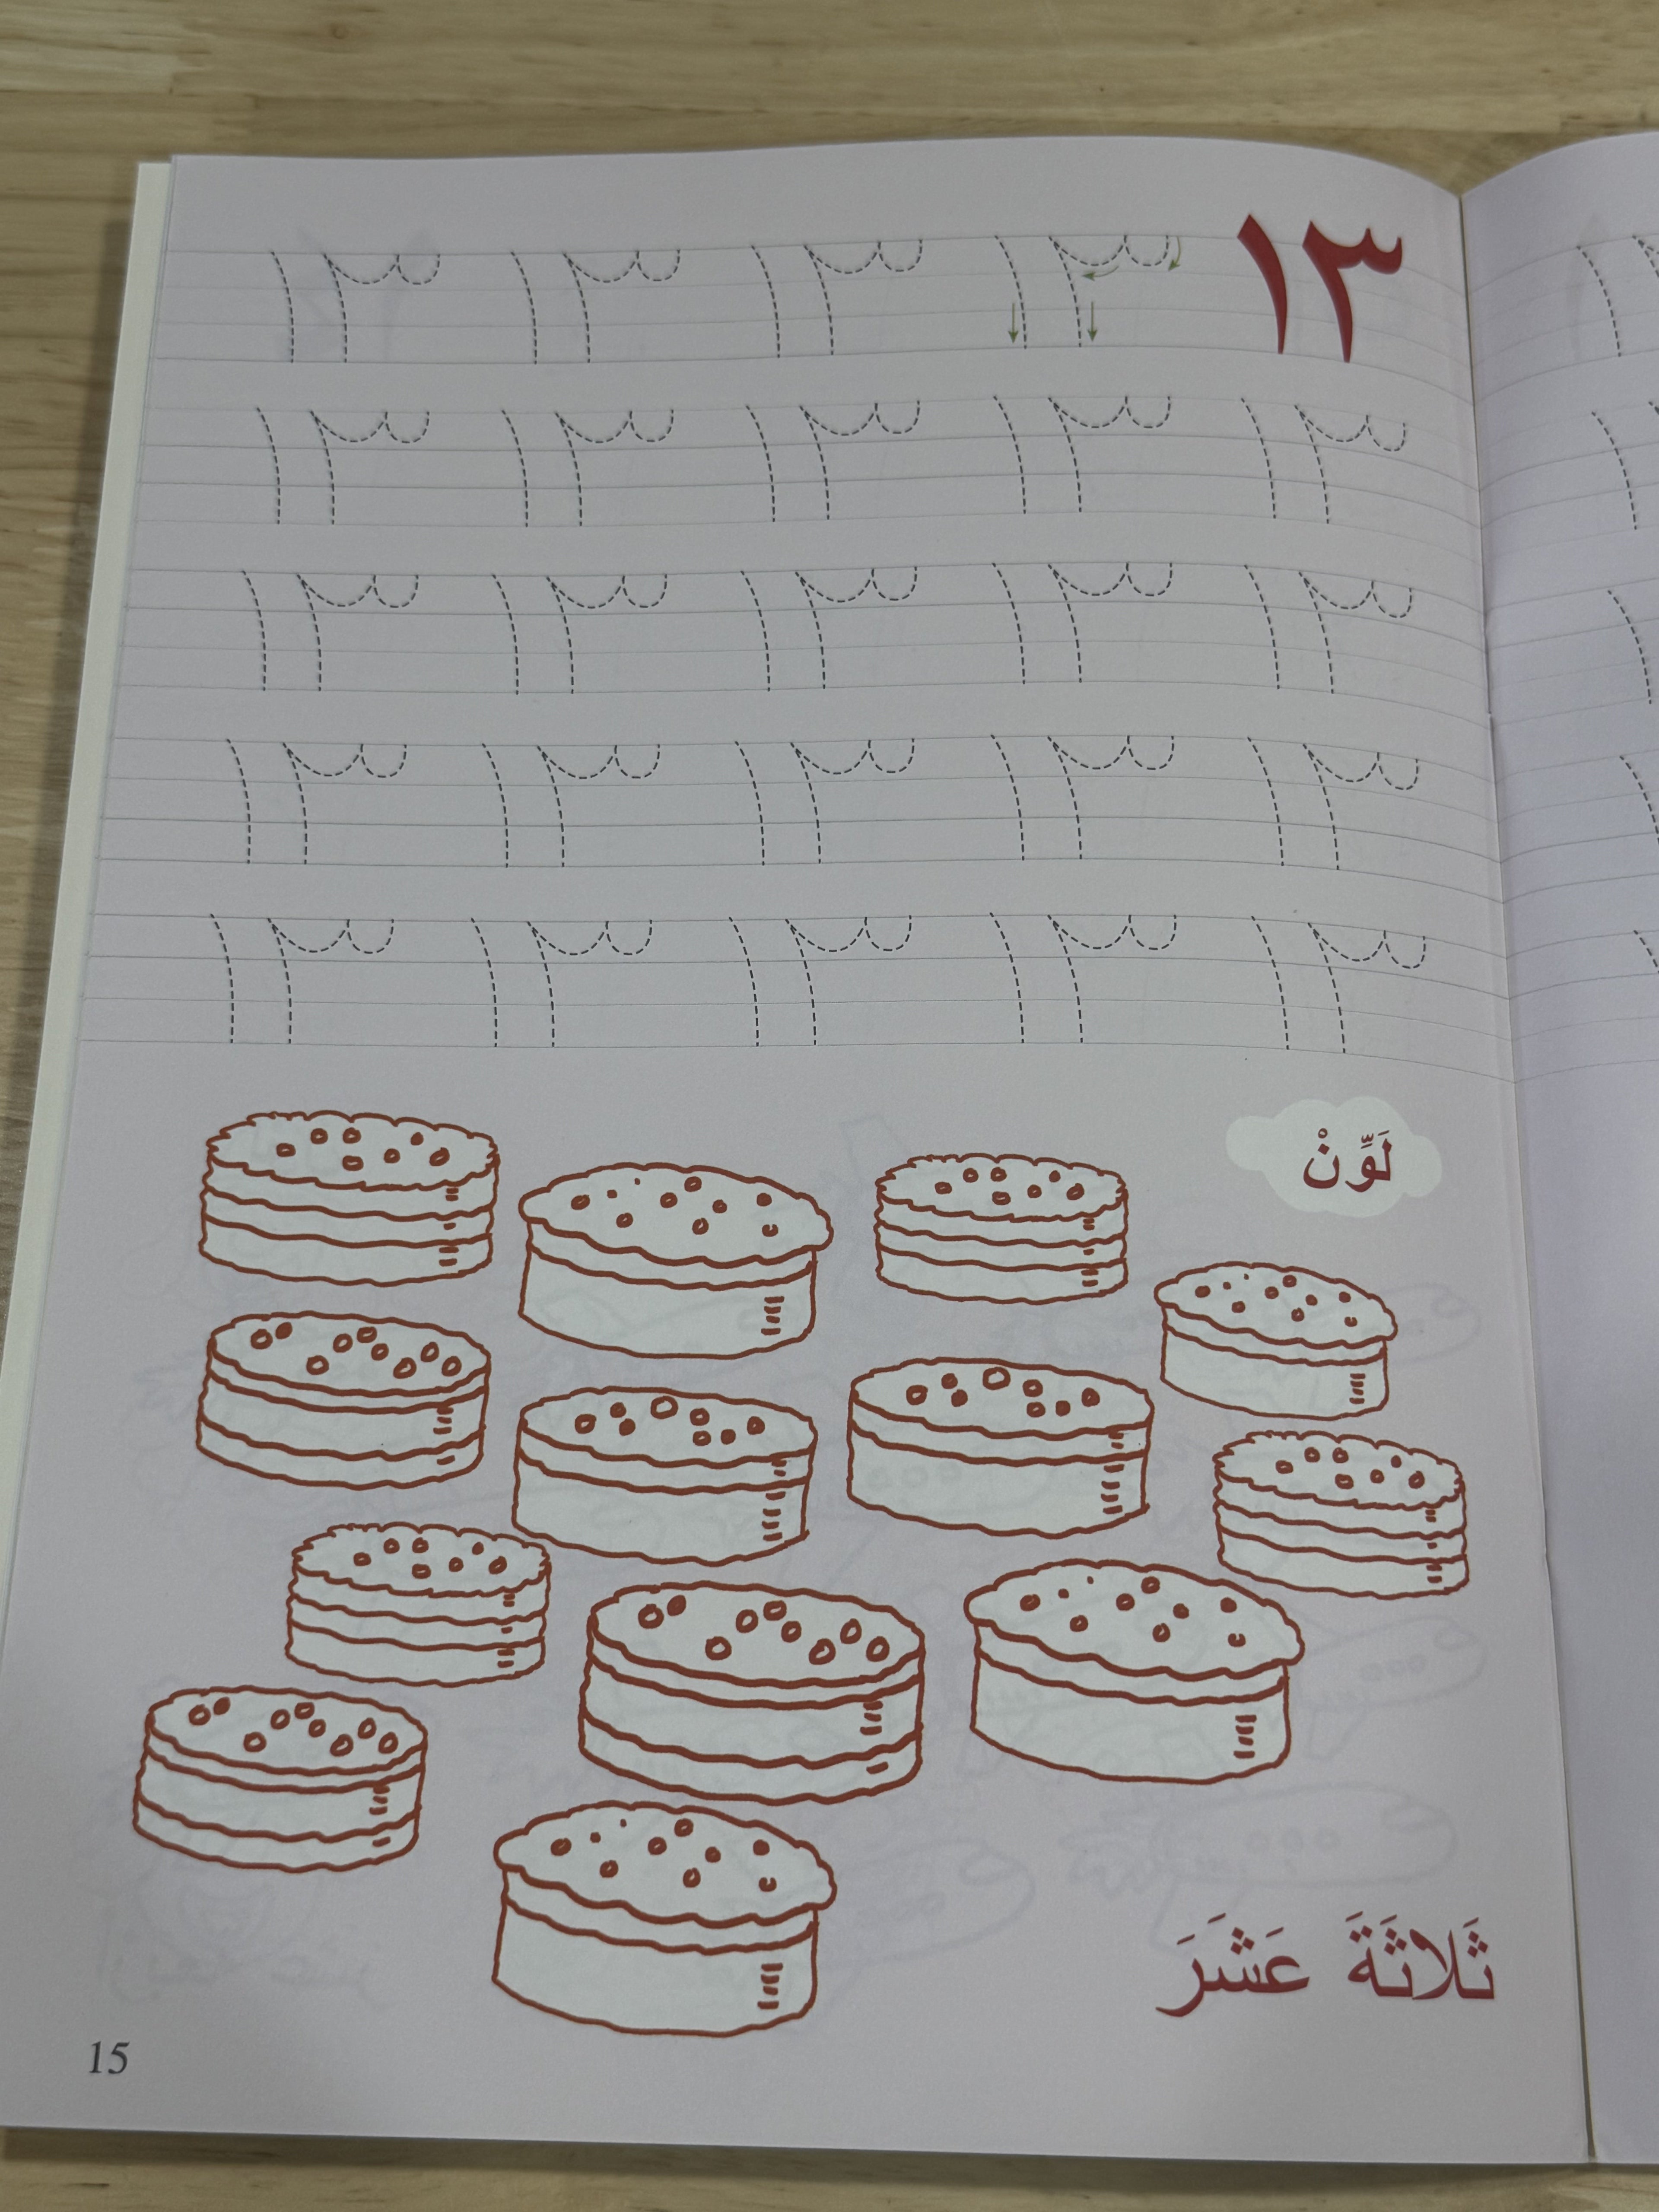 ١٣ ١٣ ١٣ ١٣ ١٣
١٣ ١٣ ١٣ ١٣ ١٣
١٣ ١٣ ١٣ ١٣ ١٣
١٣ ١٣ ١٣ ١٣ ١٣
١٣ ١٣ ١٣ ١٣ ١٣
لَوِّنْ
ثَلاثَةَ عَشَرَ
15